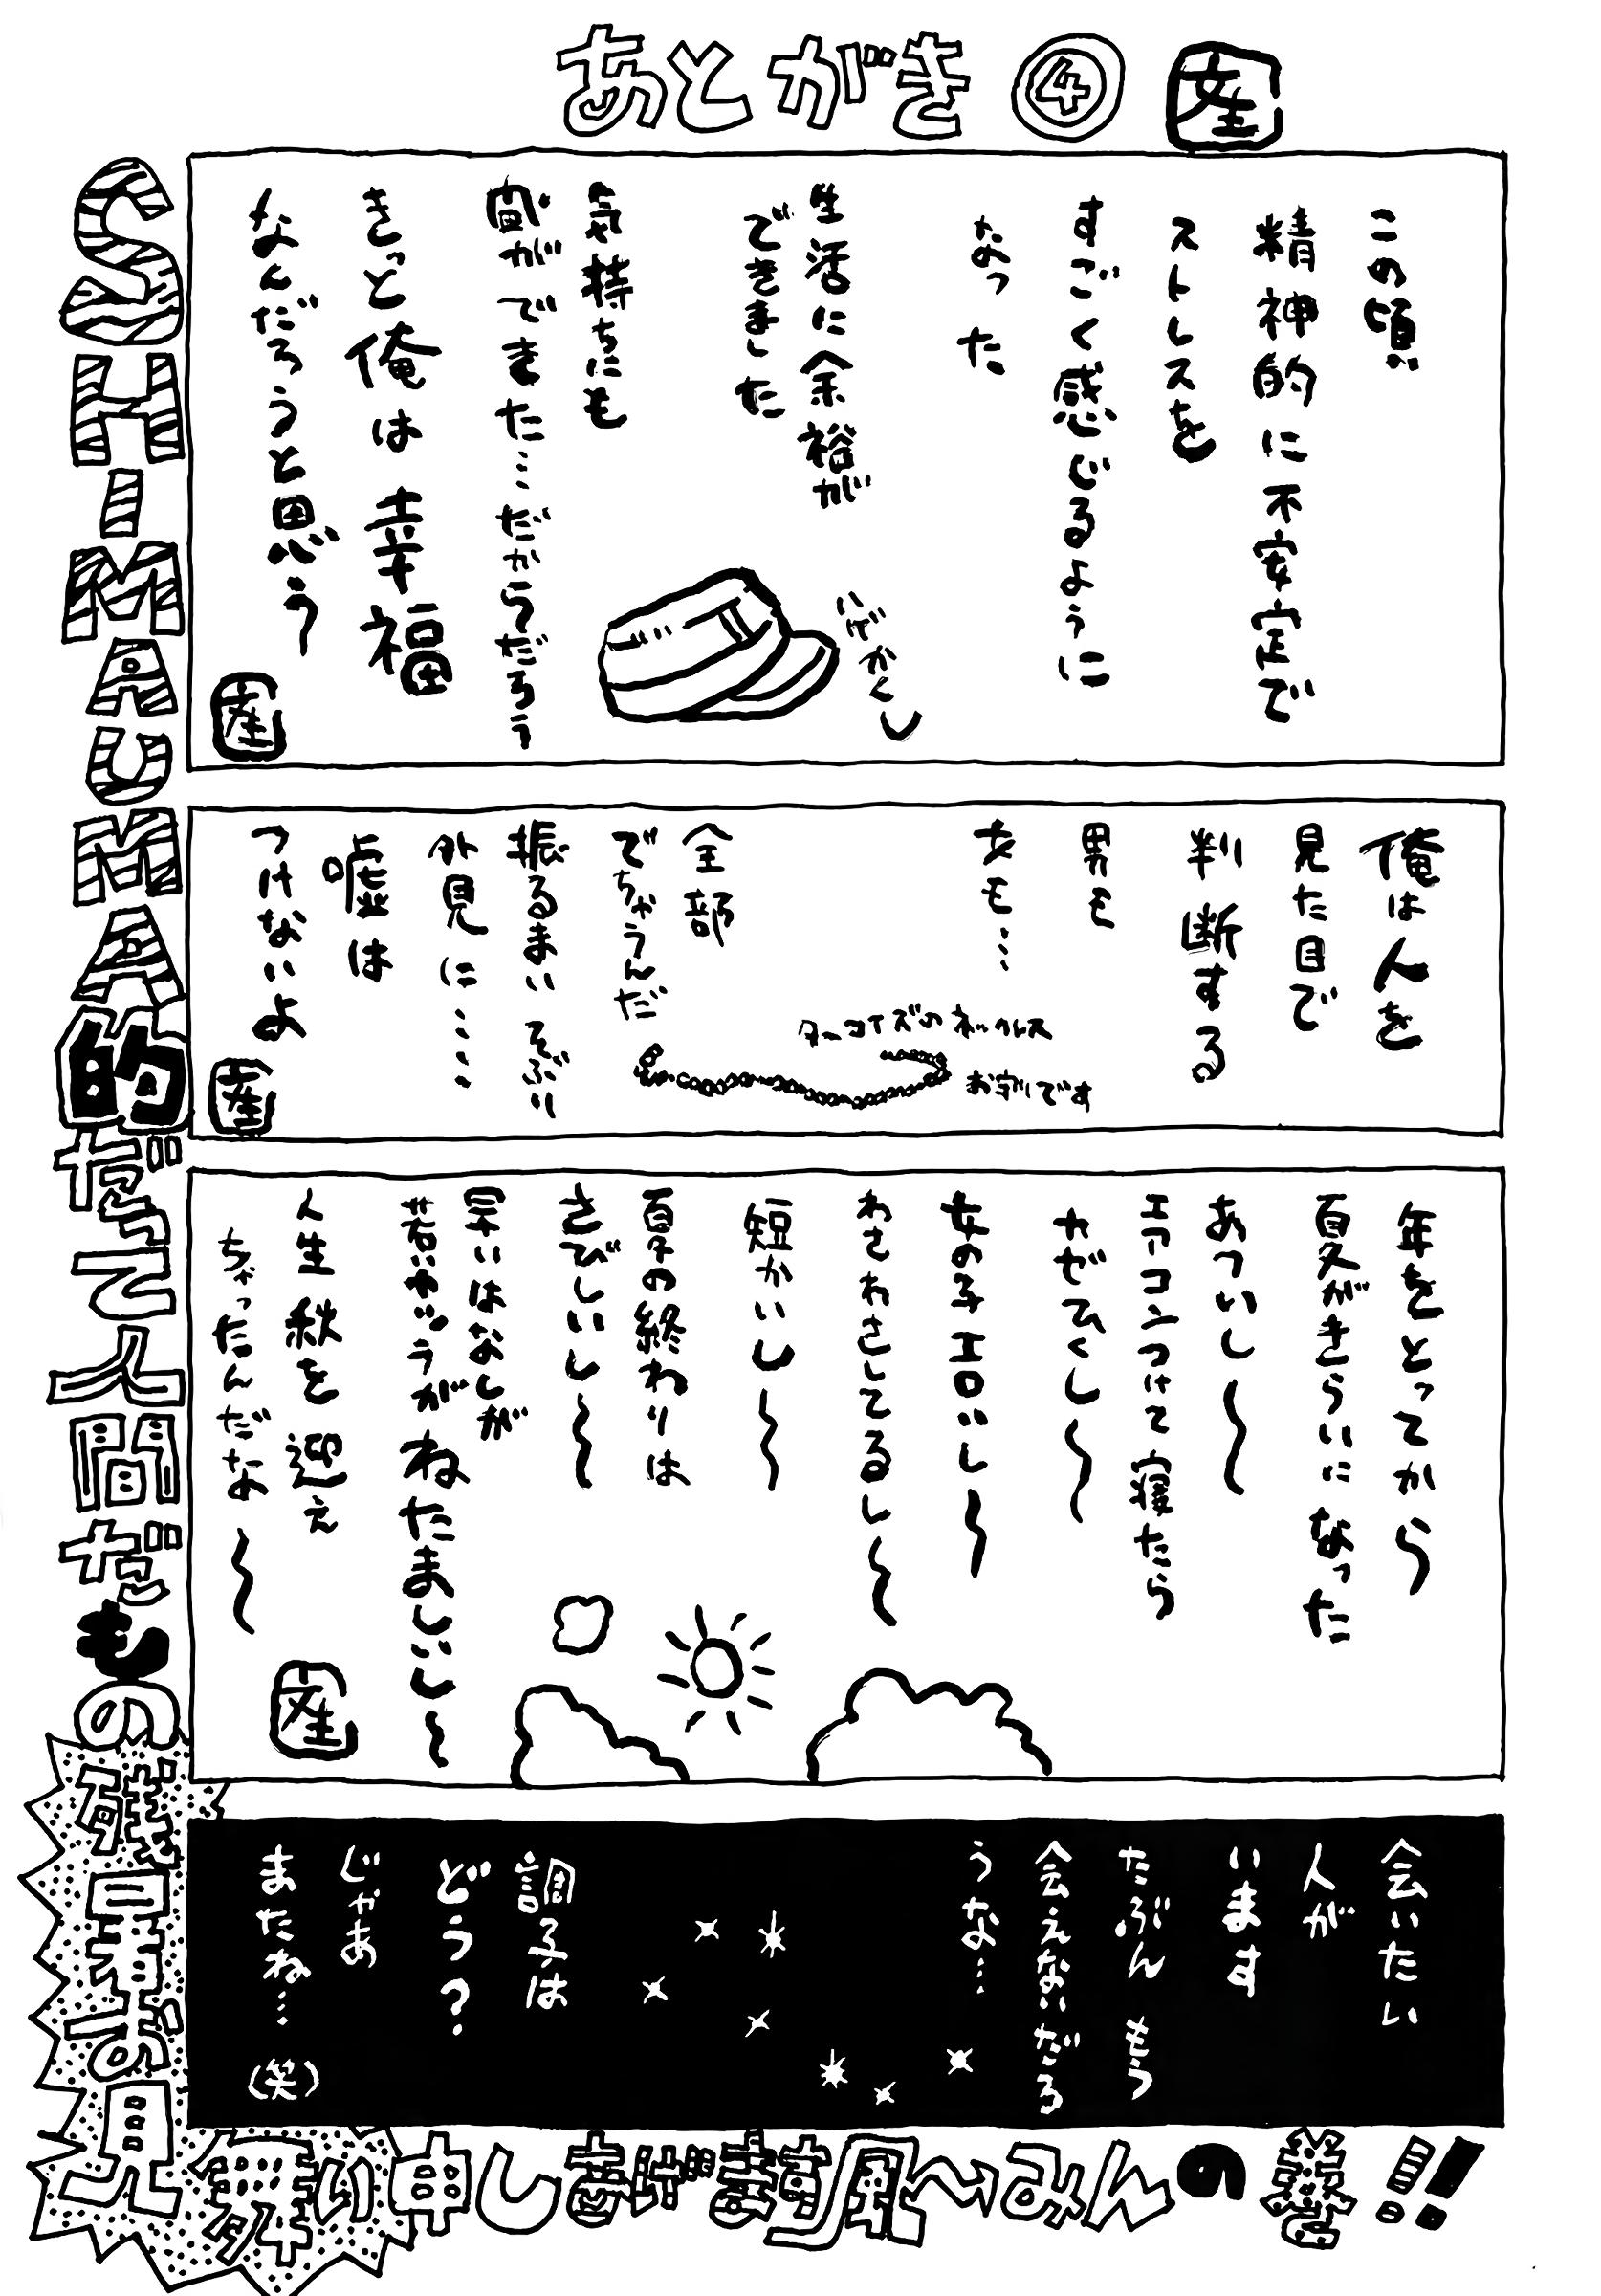 あとがき④
この頃
精神的に不安定で
ストレスを
すごく感じるように
なった
生活に余裕が
できました
気持ちにも
間ができた…だからだろう
きっと俺は幸福
なんだろうと思う
はげかくし
俺は人を
見た目で
判断する
男も
女も…
全部
でちゃうんだ
振るまい そぶり
外見に……
嘘は
つけないよ
ターコイズのネックレス
お守りです
年をとってから
夏がきらいになった
あついし〜
エアコンつけて寝たら
カゼひくし〜
女の子エロいし〜
わさわさしてるし〜
短かいし〜
夏の終わりは
さびしいし〜
早いはなしが
若いヤツらがねたましいし〜
人生秋を迎え
ちゃったんだな〜
会いたい
人が
います
たぶん もう
会えないだろ
うな…
調子は
どう?
じゃあ
またね…(笑)
SHIMAUMA的だって人間だもの残暑お見舞い申しあげます風へみんの